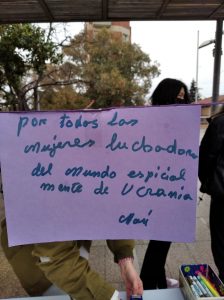 por todos las
mujeres luchadoras
del mundo espicial
mente de Ucrania